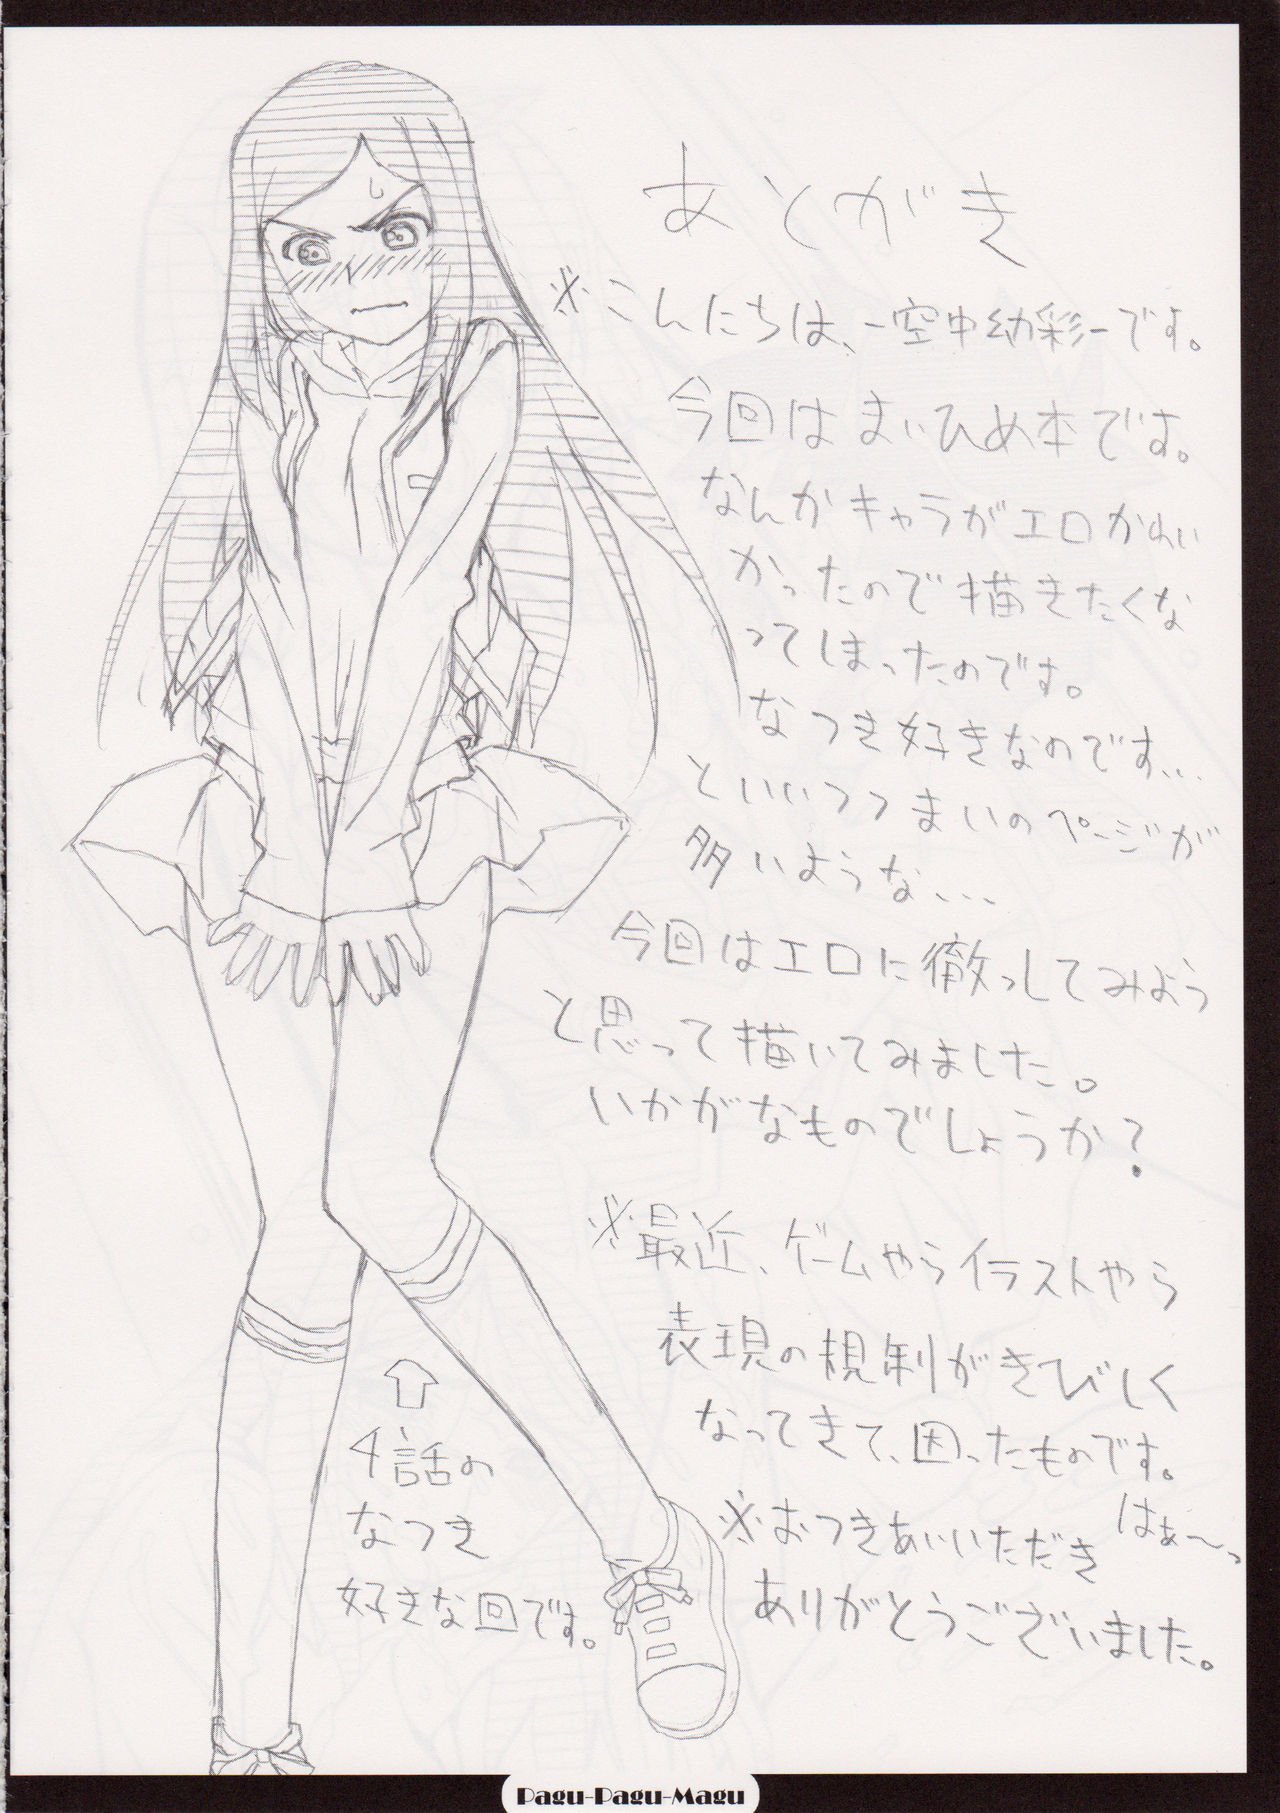 あとがき
※こんにちは、-空中幼彩-です。
今回はまいひめ本です。
なんかキャラがエロかわい
かったので描きたくな
ってしまったのです。
なつき好きなのです...
といいつつまいのページが
多いような...
今回はエロに徹っしてみよう
と思って描いてみました。
いかがなものでしょうか?
※最近、ゲームやらイラストやら
表現の規制がきびしく
なってきて、困ったものです。
はぁ~っ
※おつきあいいただき
ありがとうございました。
⇧
4話の
なつき
好きな回です。
Pagu-Pagu-Magu